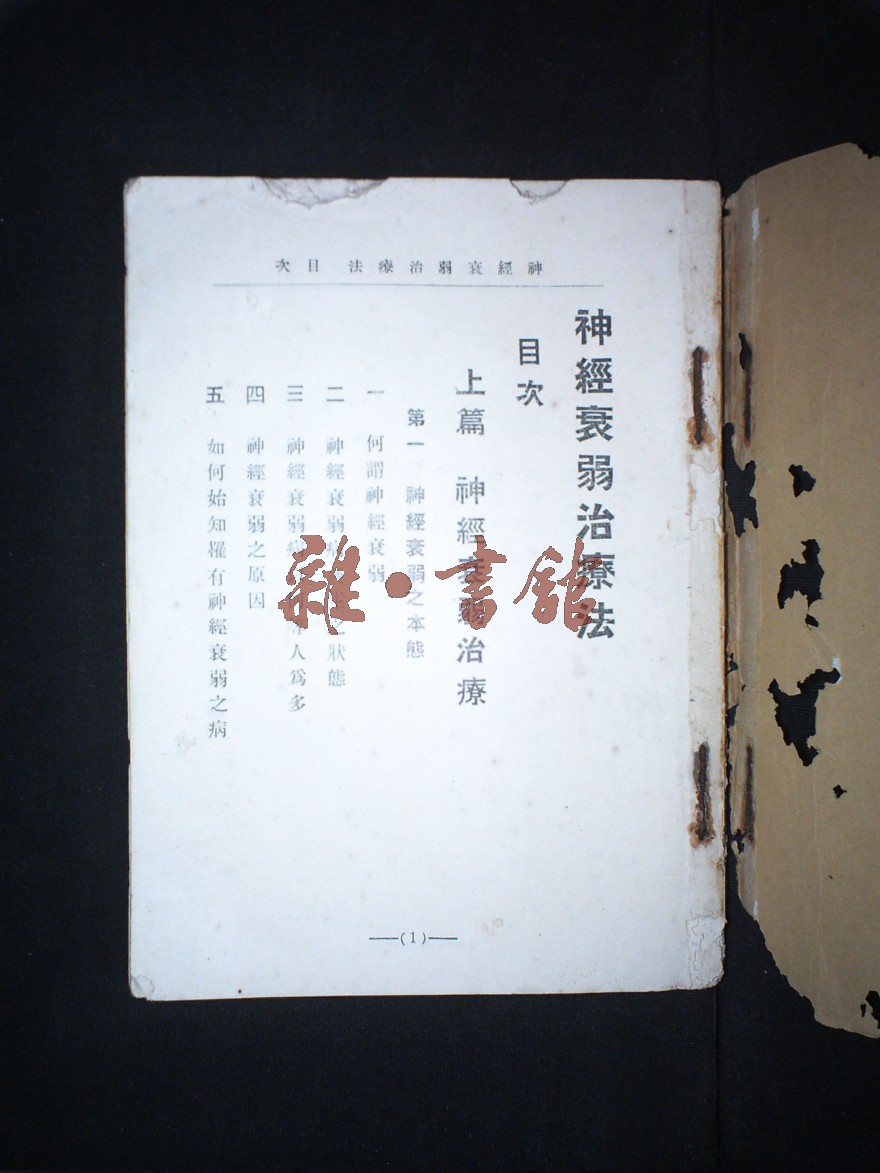 神經衰弱治療法 目次
神經衰弱治療法
目次
上篇 神經衰弱治療
第一 神經衰弱之本態
一 何謂神經衰弱
二 神經衰弱病之狀態
三 神經衰弱病人爲多
四 神經衰弱之原因
五 如何始知罹有神經衰弱之病
—(1)—
雜·書館